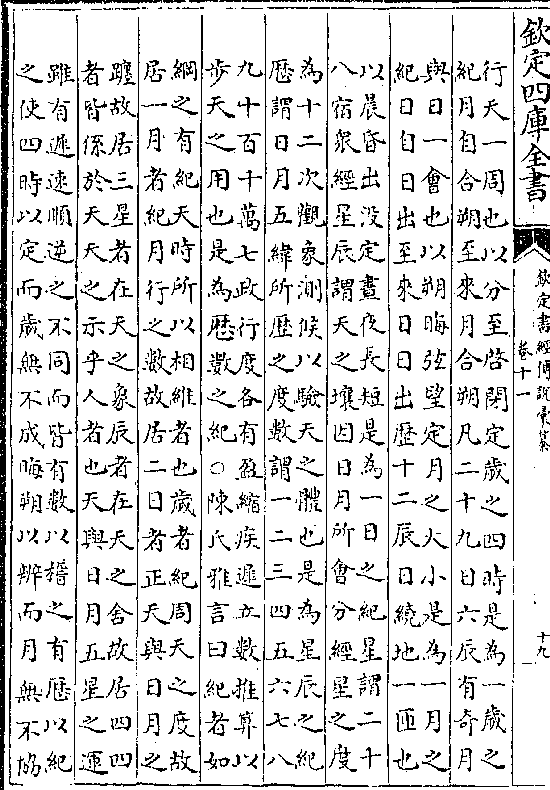 欽定四庫全書
欽定書經傳說彙纂
卷十一
十九
行天一周也以分至啓閉定歲之四時是為一歲之
紀月自合朔至來月合朔凡二十九日六辰有奇月
與日一會也以朔晦弦望定月之大小是為一月之
紀日自日出至來日日出歴十二辰日繞地一匝也
以晨昏出没定晝夜長短是為一日之紀星謂二十
八宿衆經星辰謂天之壤因日月所會分經星之度
為十二次觀象測候以驗天之體也是為星辰之紀
歴謂日月五緯所歴之度數謂一二三四五六七八
九十百十萬七政行度各有盈縮疾遲立數推算以
步天之用也是為歴數之紀○陳氏雅言曰紀者如
綱之有紀天時所以相維者也歲者紀周天之度故
居一月者紀月行之數故居二日者正天與日月之
躔故居三星者在天之象辰者在天之舍故居四四
者皆係於天天之示乎人者也天與日月五星之運
雖有遲速順逆之不同而皆有數以稽之有歴以紀
之使四時以定而歲無不成晦朔以辨而月無不協